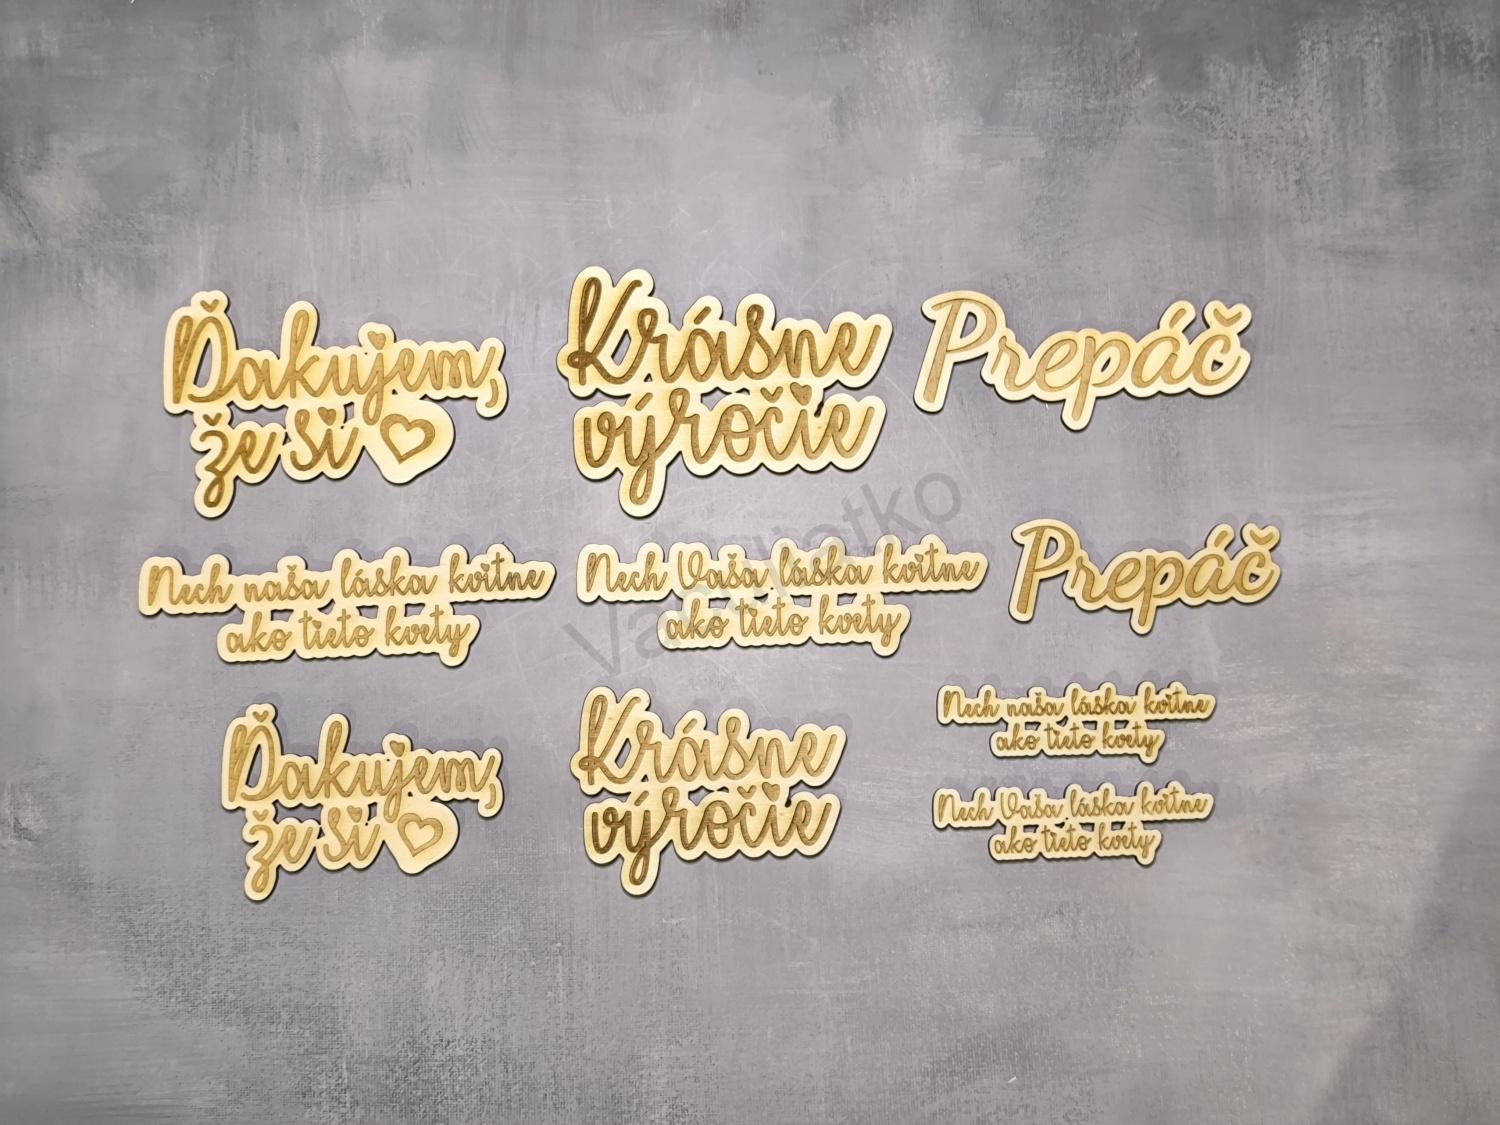 Ďakujem,
že si
Krásne
výročie
Prepáč
Nech naša láska kvitne
ako tieto kvety
Nech Vaša láska kvitne
ako tieto kvety
Prepáč
Ďakujem,
že si
Krásne
výročie
Nech naša láska kvitne
ako tieto kvety
Nech Vaša láska kvitne
ako tieto kvety